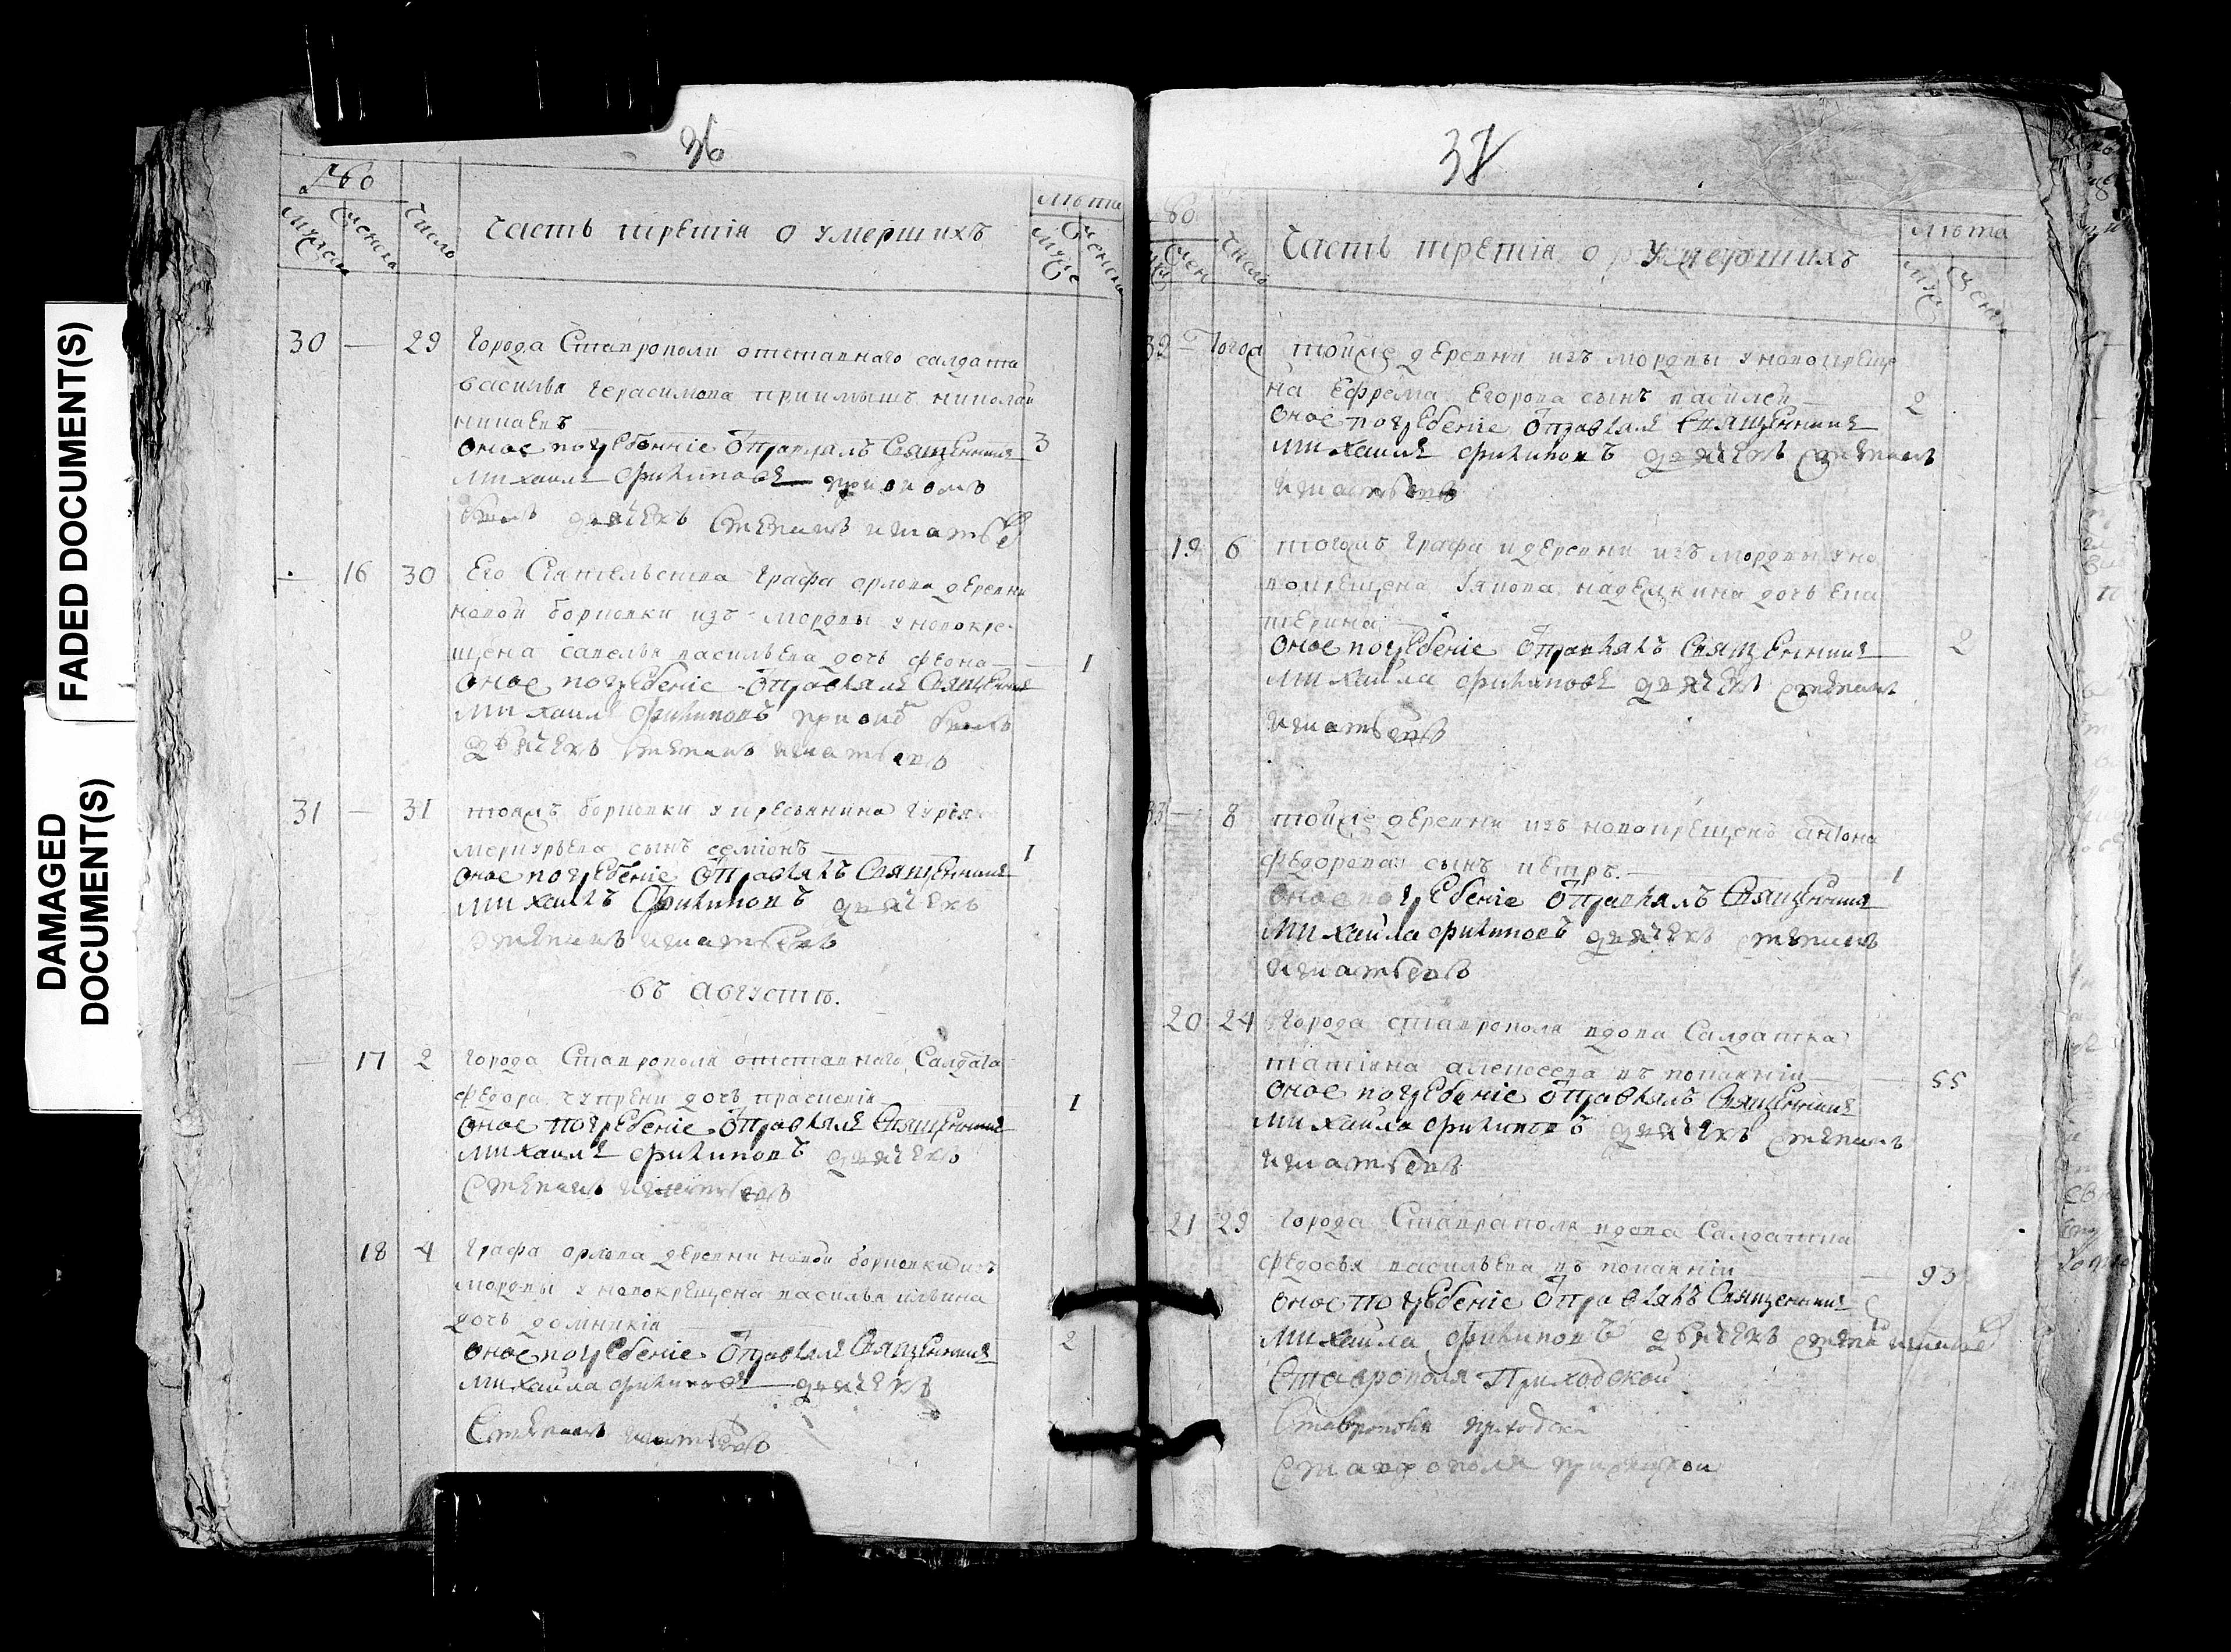 FADED DOCUMENT(S)
DAMAGED
DOCUMENT(S)
36
число
лѣта
часть третія о умершихъ
30 — 29 города Ставрополя отставного салдата
василья герасимова приимышъ николай
оное погребенніе отправлялъ Священникъ 3
михаилъ филиповъ при ономъ
былъ дьячекъ Степанъ игнатье
— 16 30 Его Сіятельства графа орлова деревни
новой борковки изъ мордвы у новокре-
щена савелья васильева дочь феона — 1
оное погребеніе отправлялъ Священникъ
михаилъ филиповъ при онѣ былъ
дьячекъ степанъ игнатьевъ
31 — 31 тояжъ борковки у кресьянина гурья
меркурьева сынъ семіонъ — 1
оное погребеніе отправлялъ Священникъ
михаилъ филиповъ дьячекъ
степанъ игнатьевъ
въ августѣ.
— 17 2 города Ставрополя отставного Салдата
федора дочь прасковія 1
оное погребеніе отправлялъ Священникъ
михаилъ филиповъ дьячекъ
Степанъ игнатьевъ
18 4 графа орлова деревни новой борковки изъ
мордвы у новокрещена василья ильина
дочь домникія
оное погребеніе отправлялъ Священникъ 2
михайла филиповъ дьячекъ
Степанъ игнатьевъ
37
число
лѣта
часть третія о умершихъ
32 — тогож тойже деревни изъ мордвы у новокреще
на Ефрема Егорова сынъ василей — 2
оное погребеніе отправлялъ Священникъ
михаилъ филиповъ дьячекъ степанъ
игнатьевъ
19 6 тогожъ графа и деревни изъ мордвы у но
вокрещена надежкина дочь ека
терина
оное погребеніе отправлялъ Священникъ 2
михайла филиповъ дьячекъ степанъ
игнатьевъ
33 — 8 тойже деревни изъ новокрещенъ антона
федорова сынъ петръ. — 1
оное погребеніе отправлялъ Священникъ
михайла филиповъ дьячекъ степанъ
игнатьевъ
20 24 города ставрополя вдова Салдатка
татіяна алексеева въ покаяніи — 55
оное погребеніе отправлялъ Священникъ
михайла филиповъ дьячекъ степанъ
игнатьевъ
21 29 города Ставраполя вдова Салдатка
федосья васильева въ покаяніи — 93
оное погребеніе отправлялъ Священникъ
михайла филиповъ дьячекъ
Ставрополя Приходской
Ставрополя приходской
Ставрополя